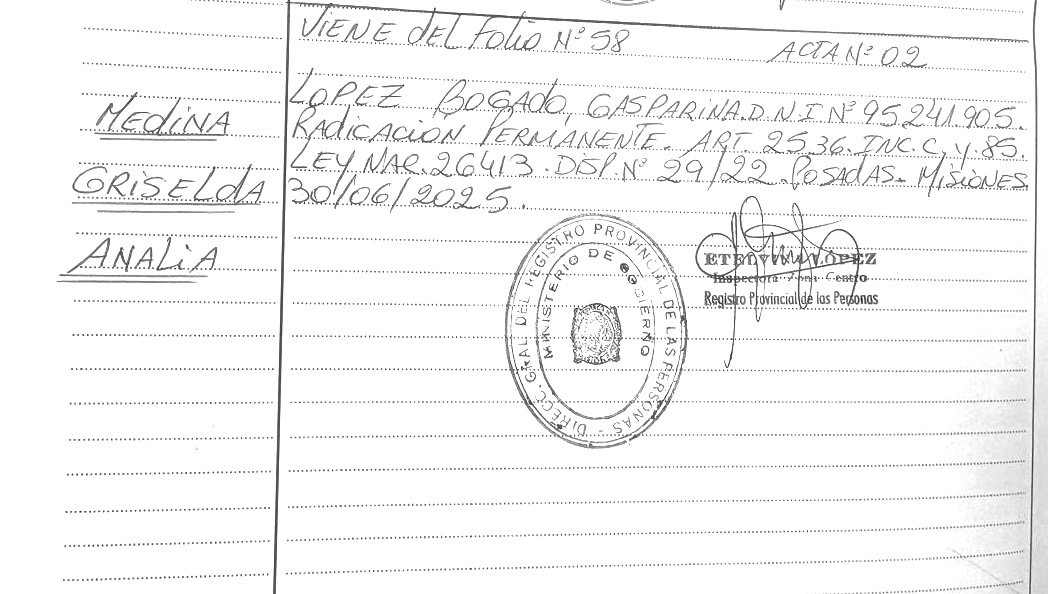 VIENE del Folio Nº 58
ACTA Nº 02
MEdiNA
GRISELdA
ANALiA
LOPEZ BOGADO, GASPARINA.D.N.I Nº 95.241.905.
RAdiCACION PERMANENTE. ART. 2536. INC. C. y. 85.
LEY NAC. 26413. DISP. Nº 29/22. POSADAS. MISIONES
30/06/2025.
DIRECC. GRAL. DEL REGISTRO PROVINCIAL DE LAS PERSONAS -
MINISTERIO DE GOBIERNO
ETELVINA LÓPEZ
Inspectora Zona Centro
Registro Provincial de las Personas